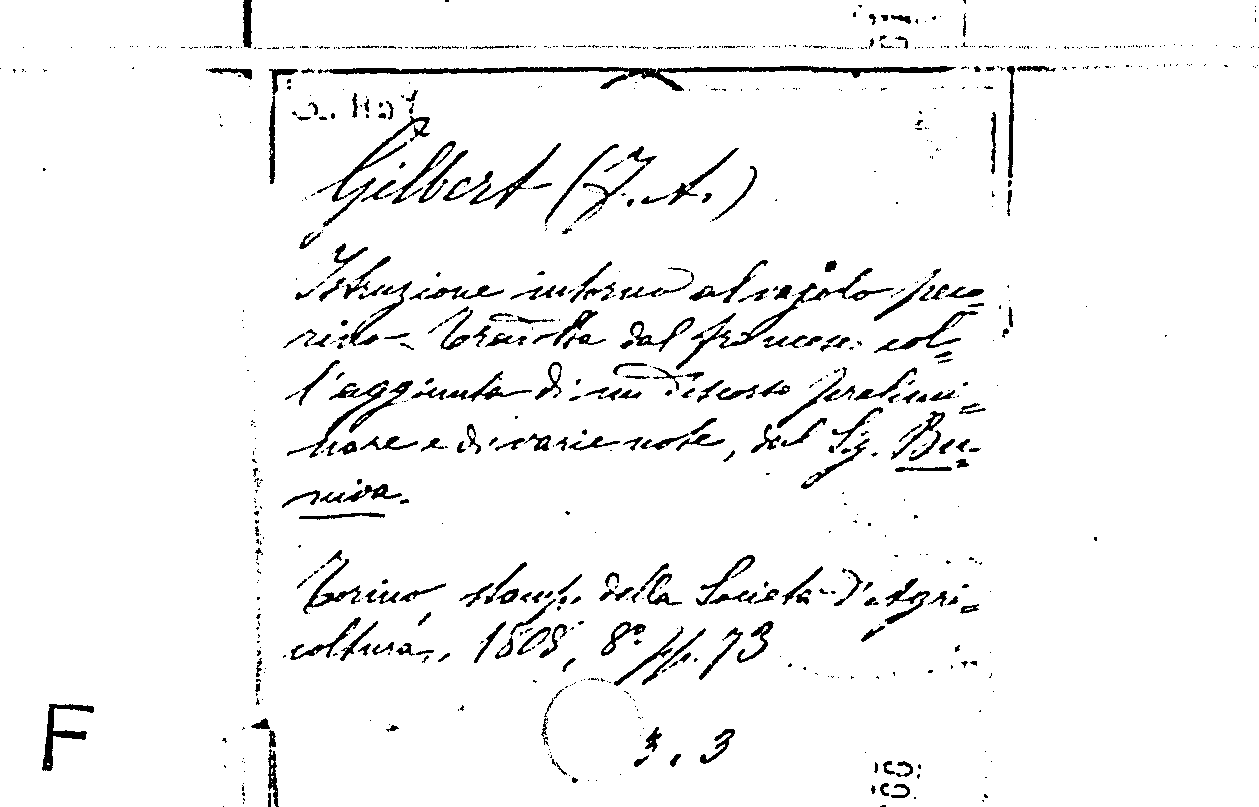 Gilbert (F. A.)
Istruzione intorno al vajolo peco=
rino. Tradotta dal francese col=
l'aggiunta di un discorso prelimi=
nare e di varie note, del Sig. Bu=
niva.
Torino, stamp. della Società d'Agri=
coltura, 1808, 8° pp. 73
3. 3
F